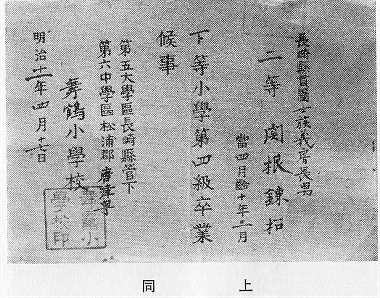 長崎縣貫屬士族義 長男
二等 関根錬
當四月齢十年 月
下等小學第四級卒業
候事
第五大學區長崎縣管下
第六中學區松浦郡唐津
舞鶴小學校
明治十 年四月 日
舞鶴小
學校印
同 上